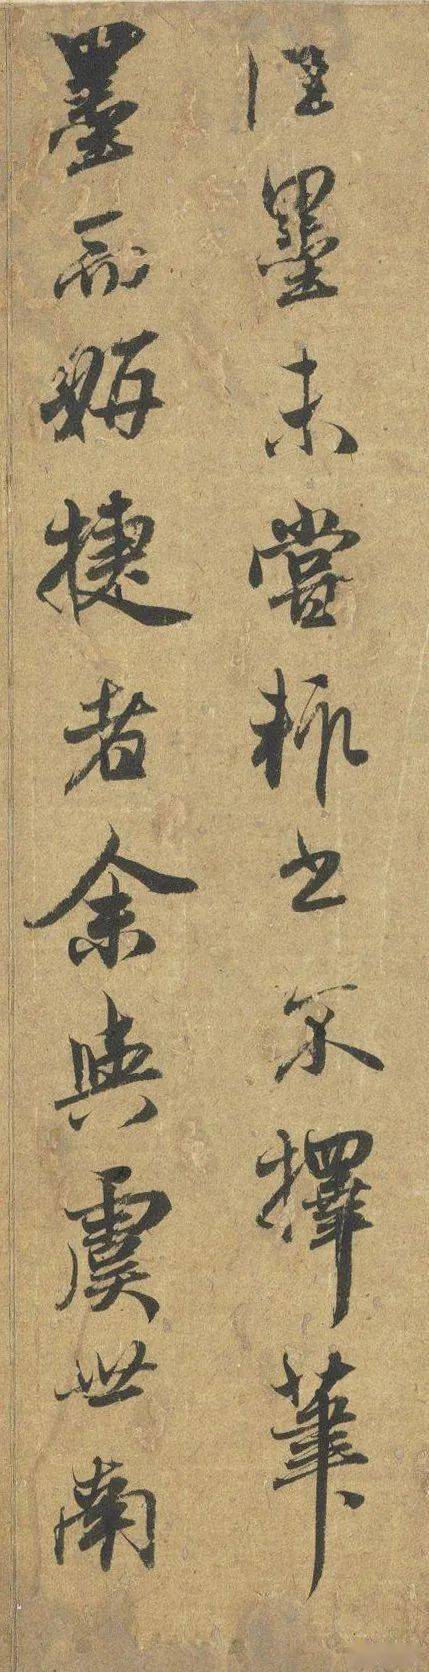 佳墨未嘗輒書不擇筆
墨而妍捷者余與虞世南